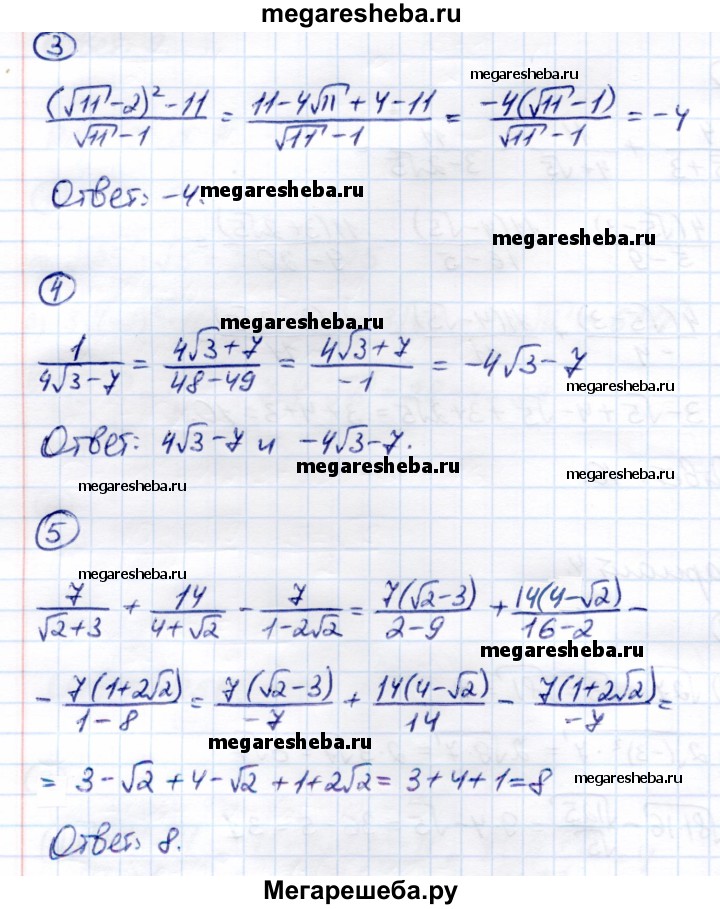 megaresheba.ru
3
megaresheba.ru
(√11-2)²-11/√11-1 = 11-4√11+4-11/√11-1 = -4(√11-1)/√11-1 = -4
Ответ: -4.
megaresheba.ru
megaresheba.ru
4
megaresheba.ru
1/4√3-7 = 4√3+7/48-49 = 4√3+7/-1 = -4√3-7
megaresheba.ru
Ответ: 4√3-7 и -4√3-7.
megaresheba.ru
megaresheba.ru
megaresheba.ru
5
megaresheba.ru
7/√2+3 + 14/4+√2 - 7/1-2√2 = 7(√2-3)/2-9 + 14(4-√2)/16-2 -
megaresheba.ru
- 7(1+2√2)/1-8 = 7(√2-3)/-7 + 14(4-√2)/14 - 7(1+2√2)/-7 =
megaresheba.ru
= 3-√2+4-√2+1+2√2 = 3+4+1=8
megaresheba.ru
Ответ: 8.
Мегарешеба.ру